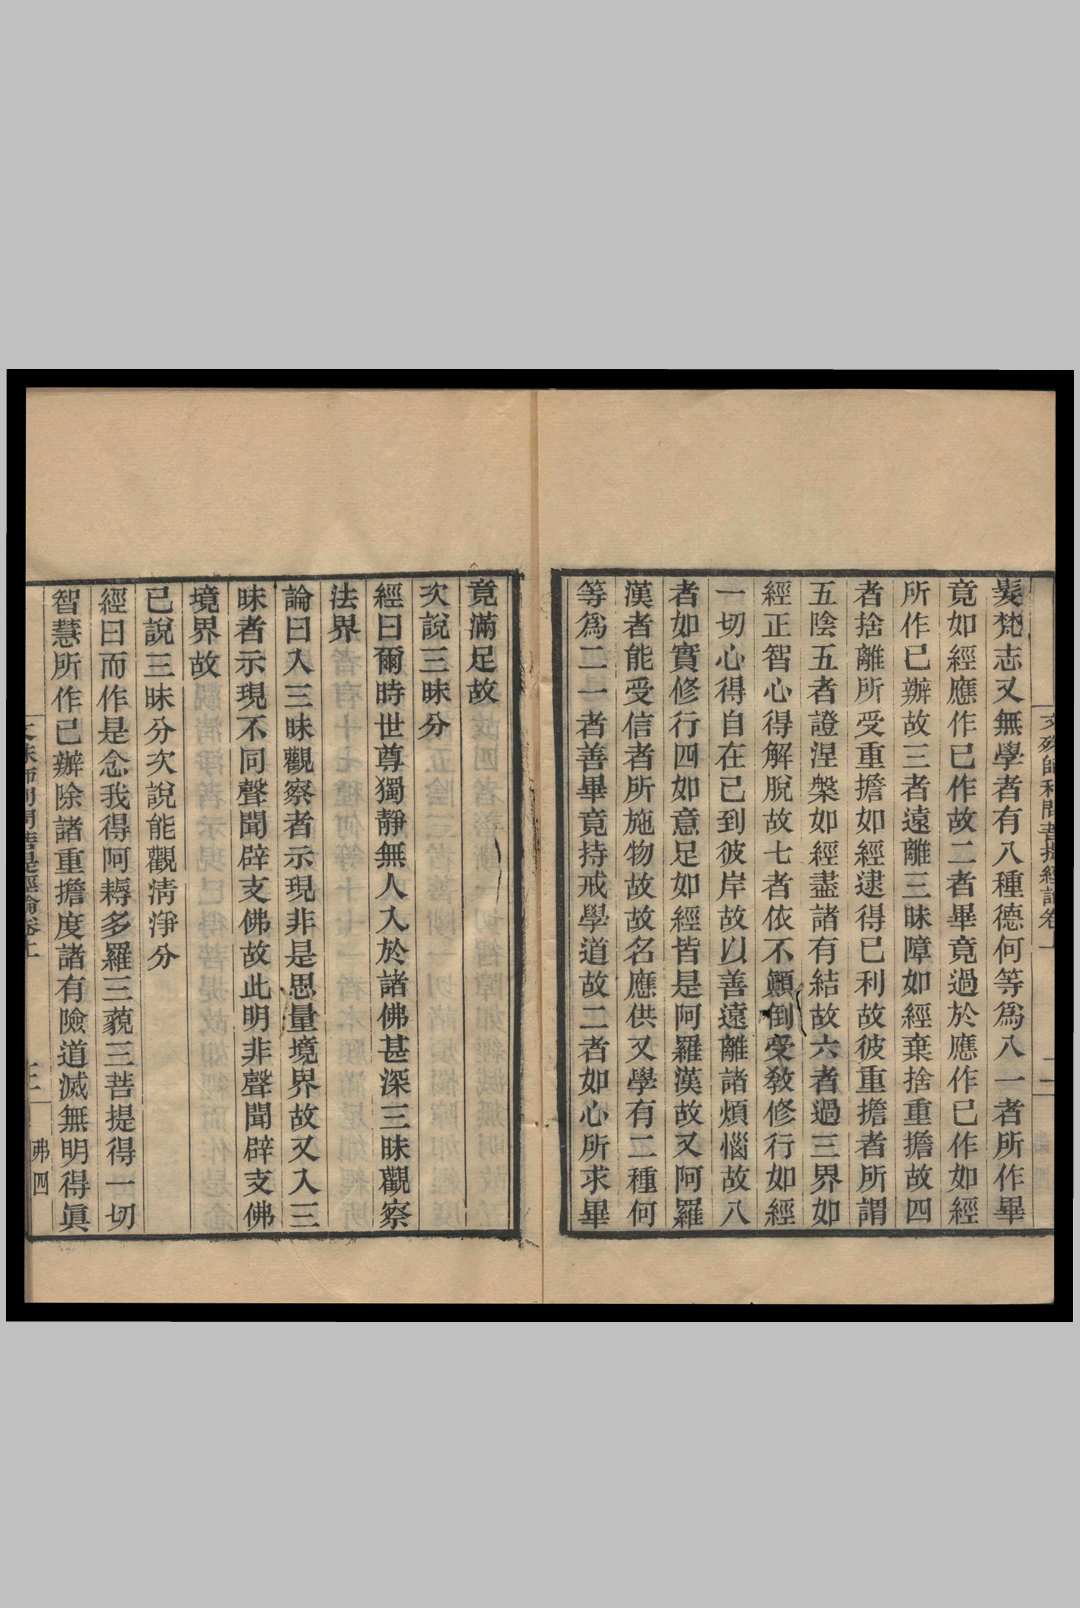 髮梵志又無學者有八種德何等爲八一者所作畢
竟如經應作已作故二者畢竟過於應作已作如經
所作已辦故三者遠離三昧障如經棄捨重擔故四
者捨離所受重擔如經逮得已利故彼重擔者所謂
五陰五者證涅槃如經盡諸有結故六者過三界如
經正智心得解脫故七者依不顚倒受敎修行如經
一切心得自在已到彼岸故以善遠離諸煩惱故八
者如實修行四如意足如經皆是阿羅漢故又阿羅
漢者能受信者所施物故故名應供又學有二種何
等爲二一者善畢竟持戒學道故二者如心所求畢
竟滿足故
次說三昧分
經曰爾時世尊獨靜無人入於諸佛甚深三昧觀察
法界
論曰入三昧觀察者示現非是思量境界故又入三
昧者示現不同聲聞辟支佛故此明非聲聞辟支佛
境界故
已說三昧分次說能觀淸淨分
經曰而作是念我得阿耨多羅三藐三菩提得一切
智慧所作已辦除諸重擔度諸有險道滅無明得眞
文殊師利問菩提經論卷上
弗四